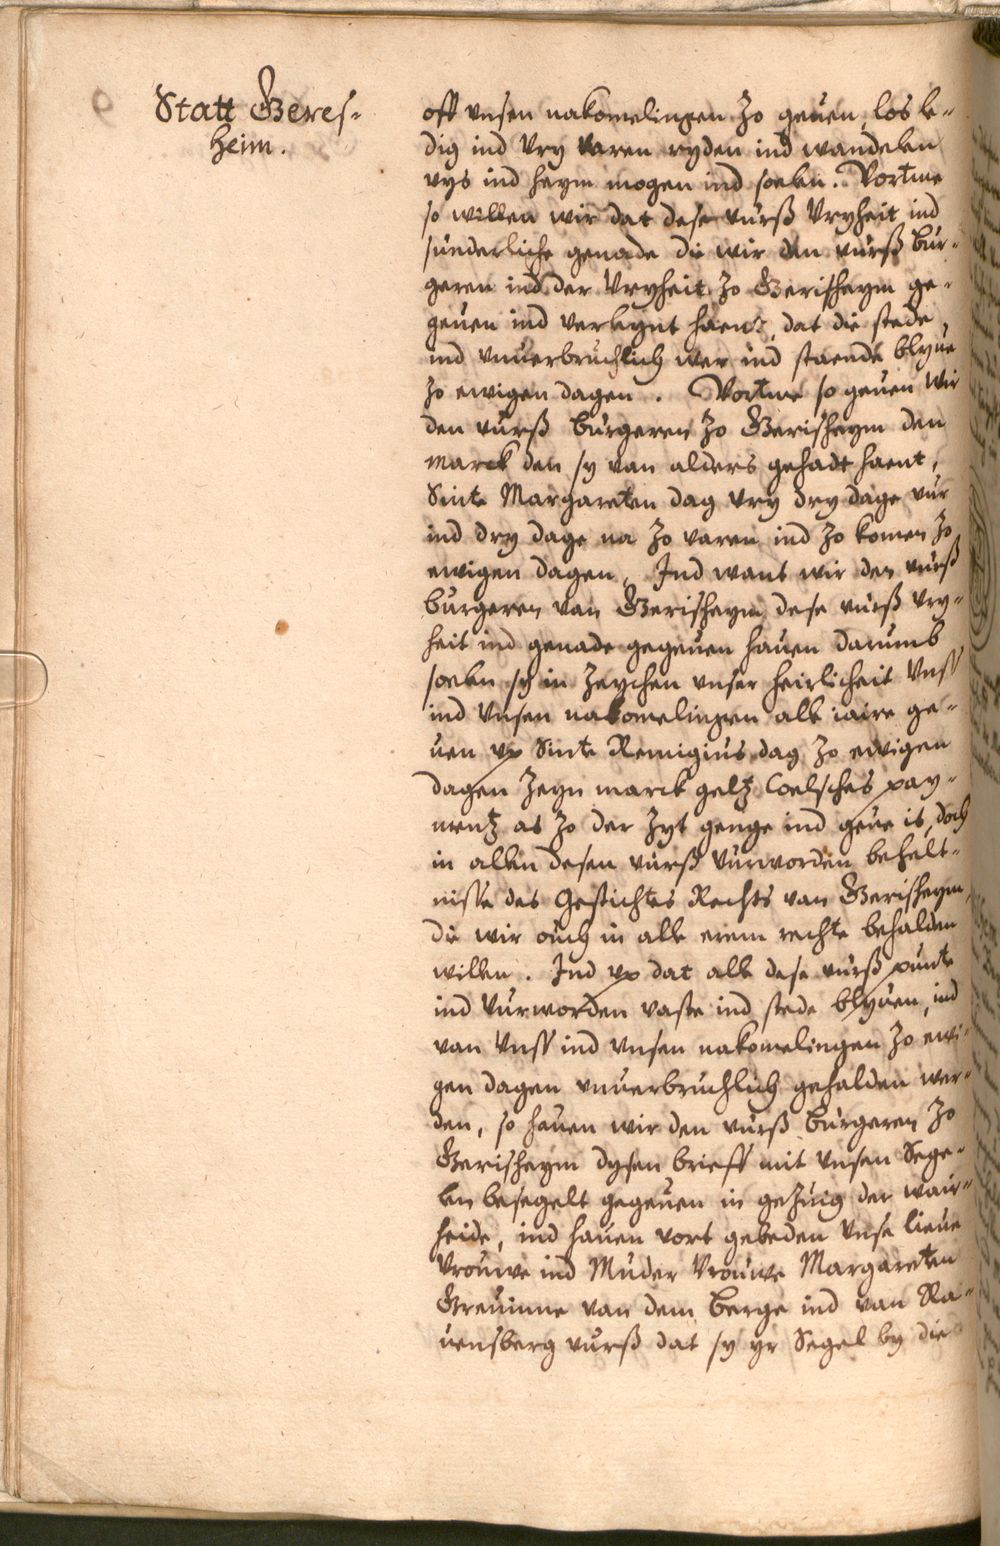 Statt Geres-
heim.
off unsen nakomelingen zo geuen, los le-
dig ind vry varen ryden ind wandelen
uys ind heym mogen ind soelen. Vortme
so willen wir dat dese vurß vryheit ind
sunderliche genade die wir den vurß bur-
geren ind der vryheit zo Gerisheym ge-
geuen ind verleynt haent, dat die stede
ind vnuerbruchlich wer ind staende blyue
zo ewigen dagen. Vortme so geuen wir
den vurß burgeren zo Gerisheym den
marck den sy van alders gehadt haent,
Sinte Margareten dag vry dry dage vur
ind dry dage na zo varen ind zo komen zo
ewigen dagen, Ind want wir den vurß
burgeren van Gerisheym dese vurß vry-
heit ind genade gegeuen hauen darumb
soelen sy in zeychen unser heirlicheit vnß
ind vnsen nakomelingen alle iaire ge-
uen vp Sinte Remigius dag zo ewigen
dagen zeyn marck geltz Coelsches pay-
mentz as zo der zyt genge ind geue is, doch
in allen desen vurß vurworden behelt-
nisse des Gestichtes Rechts van Gerisheym,
die wir ouch in alle erem rechte behalden
willen. Ind vp dat alle dese vurß punte
ind vurworden vaste ind stede blyuen, ind
van vnß ind vnsen nakomelingen zo ewi-
gen dagen vnuerbruchlich gehalden wer-
den, so hauen wir den vurß burgeren zo
Gerisheym dysen brieff mit vnsen Sege-
len besegelt gegeuen in gezuig der wair-
heide, ind hauen vort gebeden vnse lieue
vrouwe ind Muder vrouwe Margareten
Greuinne van dem Berge ind van Ra-
uensberg vurß dat sy yr Segel by die